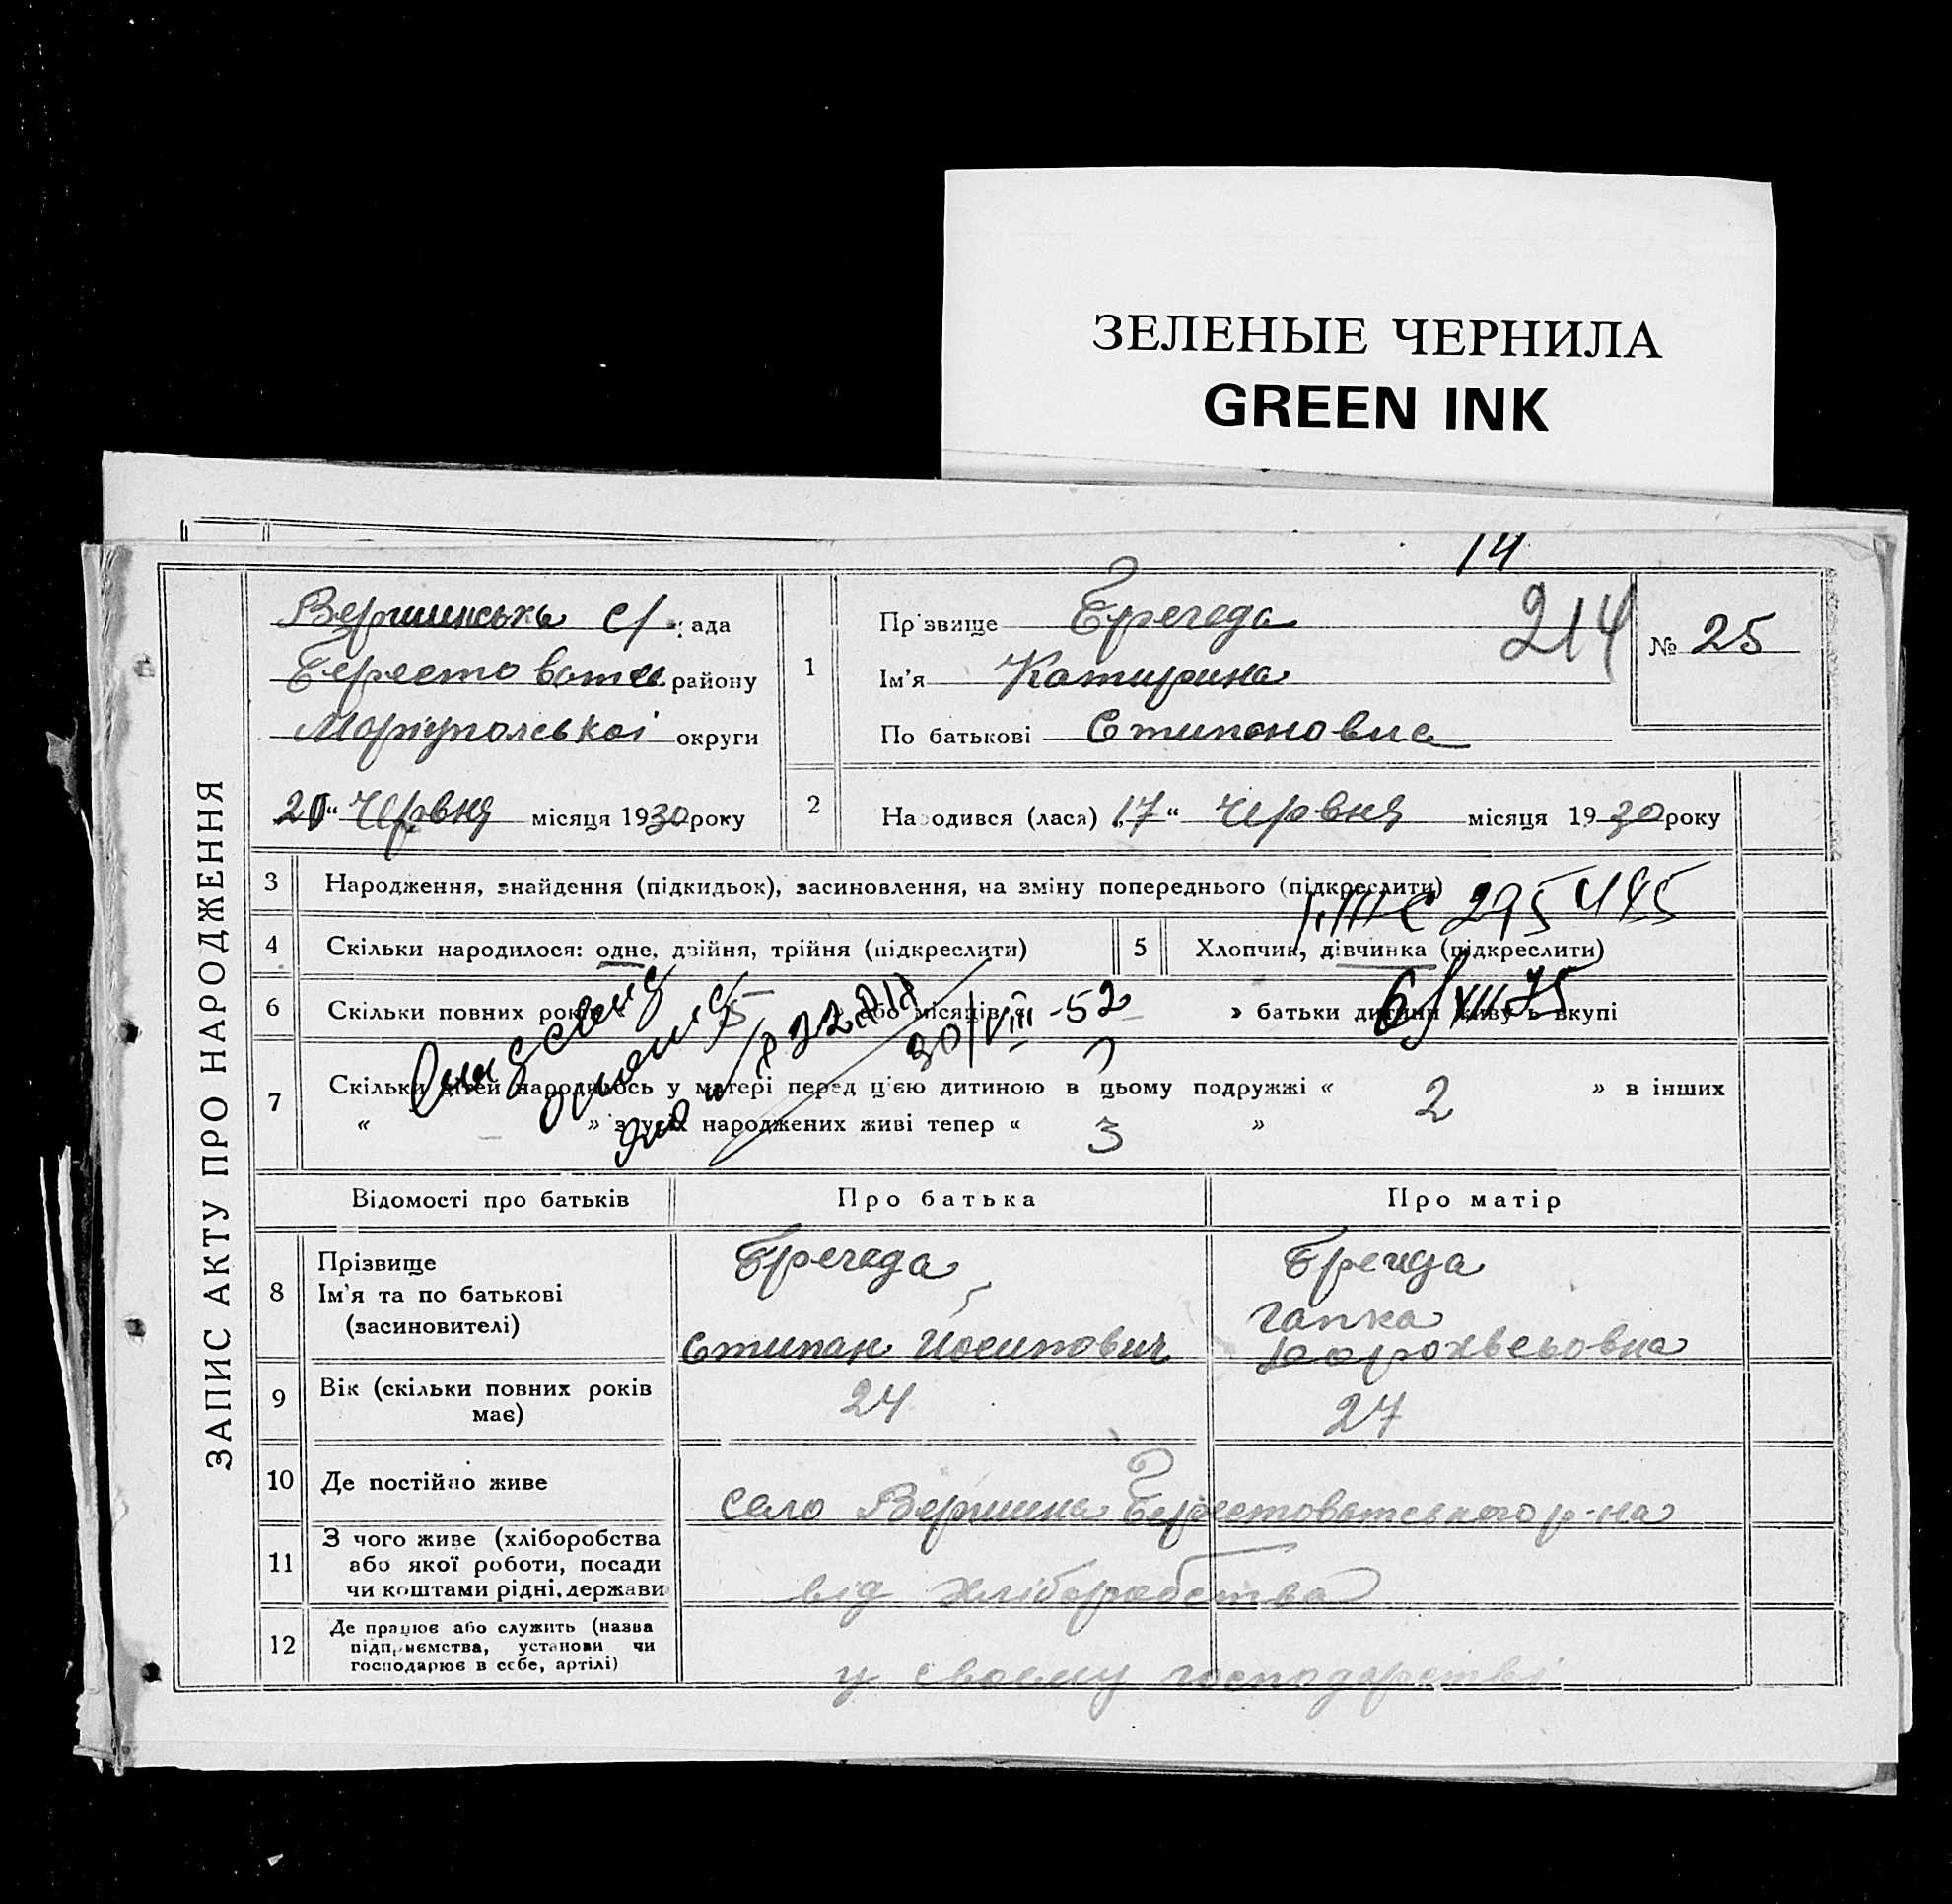 ЗЕЛЕНЫЕ ЧЕРНИЛА
GREEN INK
14
ЗАПИС АКТУ ПРО НАРОДЖЕННЯ
Вершинська с/рада
района
Маріупольскоі округи
20 "Червня місяця 1930 року
1
Прізвище Бречеда
Ім'я Катирина
По батькові Стипановна
214
№ 25
2
Народився (лася) „17" Червня місяця 1930 року
3 Народження, знайдення (підкидьок), засиновлення, на зміну попереднього (підкреслити)
295445
4 Скільки народилося: одне, двійня, трійня (підкреслити)
5 Хлопчик, дівчинка (підкреслити)
6 Скільки повних років 5 або місяців « » батьки дитини живуть вкупі
30/VIII-52
6/XII 75
7 Скільки дітей народилось у матері перед цією дитиною в цьому подружжі « 2 » в інших
« — » з усіх народжених живі тепер « 3 »
Відомості про батьків Про батька Про матір
8 Прізвище
Ім'я та по батькові
(засиновителі)
Бречеда
Стипан Иосипович
Бречеда
Гапка
9 Вік (скільки повних років
має)
24
27
10 Де постійно живе
село Вершина Берестоватського р-на
11 З чого живе (хліборобства
або якої роботи, посади
чи коштами рідні, держави
від хліборобства
12 Де працює або служить (назва
підприємства, установи чи
господарює в себе, артілі)
у своему господарстві